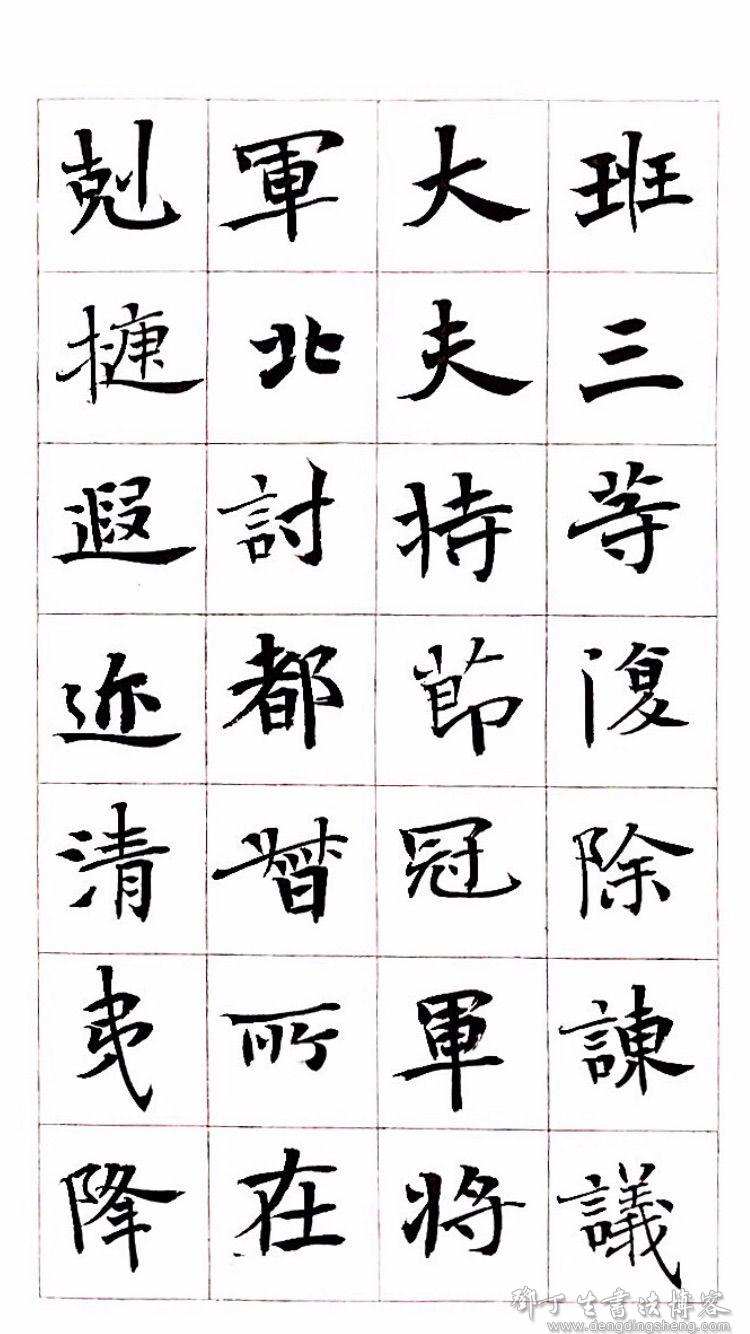 班三等復除諫議
大夫持節冠軍將
軍北討都督所在
剋捷遐迩清夷降
鄧丁生書法博客
www.dengdingsheng.com